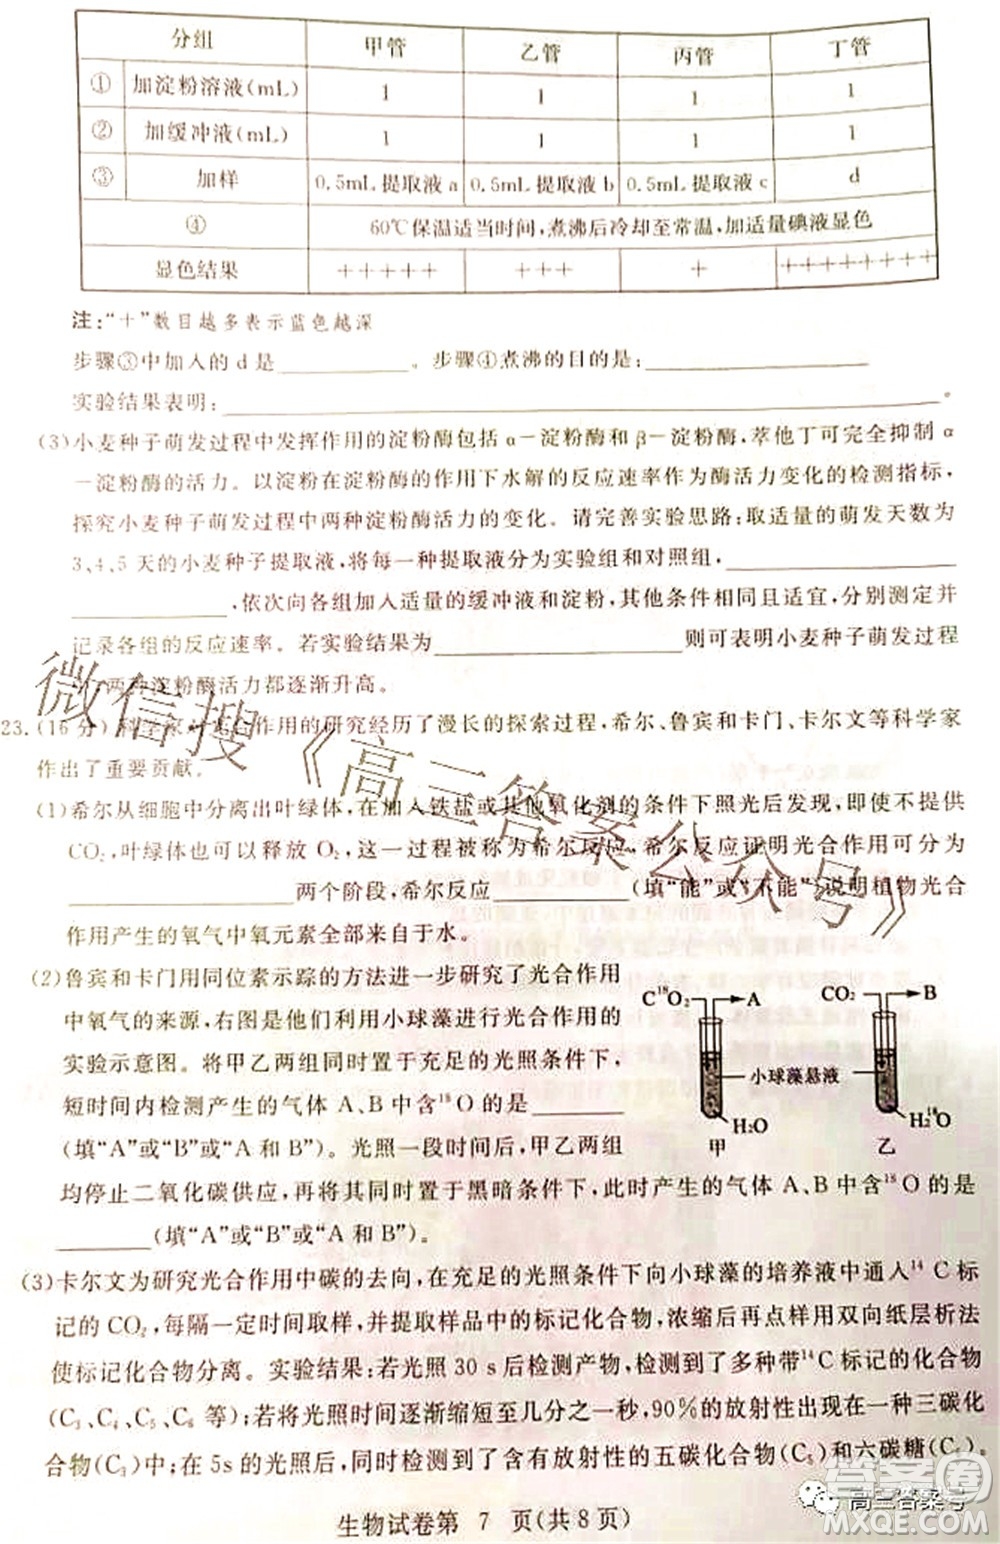 分组 甲管 乙管 丙管 丁管
① 加淀粉溶液(mL) 1 1 1 1
② 加缓冲液(mL) 1 1 1 1
③ 加样 0.5mL 提取液 a 0.5mL 提取液 b 0.5mL 提取液 c d
④ 60℃保温适当时间,煮沸后冷却至常温,加适量碘液显色
显色结果 +++++ +++ + ++++++++
注:“十”数目越多表示蓝色越深
步骤③中加入的 d 是__________。步骤④煮沸的目的是:__________
实验结果表明:__________。
(3)小麦种子萌发过程中发挥作用的淀粉酶包括 α-淀粉酶和 β-淀粉酶,萃他丁可完全抑制 α
-淀粉酶的活力。以淀粉在淀粉酶的作用下水解的反应速率作为酶活力变化的检测指标,
探究小麦种子萌发过程中两种淀粉酶活力的变化。请完善实验思路:取适量的萌发天数为
3、4、5 天的小麦种子提取液,将每一种提取液分为实验组和对照组,__________
__________,依次向各组加入适量的缓冲液和淀粉,其他条件相同且适宜,分别测定并
记录各组的反应速率。若实验结果为__________则可表明小麦种子萌发过程
两种淀粉酶活力都逐渐升高。
23.(16 分)科学家对光合作用的研究经历了漫长的探索过程,希尔、鲁宾和卡门、卡尔文等科学家
作出了重要贡献。
(1)希尔从细胞中分离出叶绿体,在加入铁盐或其他氧化剂的条件下照光后发现,即使不提供
CO₂,叶绿体也可以释放 O₂,这一过程被称为希尔反应,希尔反应证明光合作用可分为
__________两个阶段,希尔反应__________(填“能”或“不能”)说明植物光合
作用产生的氧气中氧元素全部来自于水。
(2)鲁宾和卡门用同位素示踪的方法进一步研究了光合作用
中氧气的来源,右图是他们利用小球藻进行光合作用的
实验示意图。将甲乙两组同时置于充足的光照条件下,
短时间内检测产生的气体 A、B 中含¹⁸O 的是__________
(填“A”或“B”或“A 和 B”)。光照一段时间后,甲乙两组
均停止二氧化碳供应,再将其同时置于黑暗条件下,此时产生的气体 A、B 中含¹⁸O 的是
__________(填“A”或“B”或“A 和 B”)。
C¹⁸O₂ A CO₂ B
小球藻悬液
H₂O H₂¹⁸O
甲 乙
(3)卡尔文为研究光合作用中碳的去向,在充足的光照条件下向小球藻的培养液中通入¹⁴C 标
记的 CO₂,每隔一定时间取样,并提取样品中的标记化合物,浓缩后再点样用双向纸层析法
使标记化合物分离。实验结果:若光照 30 s 后检测产物,检测到了多种带¹⁴C 标记的化合物
(C₃、C₄、C₅、C₆ 等);若将光照时间逐渐缩短至几分之一秒,90%的放射性出现在一种三碳化
合物(C₃)中;在 5s 的光照后,同时检测到了含有放射性的五碳化合物(C₅)和六碳糖(C₆)。
生物试卷第 7 页(共 8 页)
微信搜《高三答案公众号》
高三答案号
答案圈
MXQE.COM